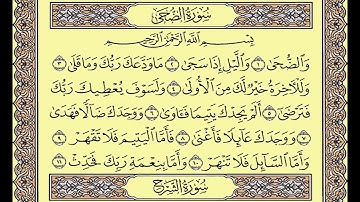 سُورَةُ الضُّحَىٰ
بِسْمِ اللَّهِ الرَّحْمَٰنِ الرَّحِيمِ
وَالضُّحَىٰ ١ وَاللَّيْلِ إِذَا سَجَىٰ ٢ مَا وَدَّعَكَ رَبُّكَ وَمَا قَلَىٰ ٣
وَلَلْآخِرَةُ خَيْرٌ لَّكَ مِنَ الْأُولَىٰ ٤ وَلَسَوْفَ يُعْطِيكَ رَبُّكَ
فَتَرْضَىٰ ٥ أَلَمْ يَجِدْكَ يَتِيمًا فَآوَىٰ ٦ وَوَجَدَكَ ضَالًّا فَهَدَىٰ
٧ وَوَجَدَكَ عَائِلًا فَأَغْنَىٰ ٨ فَأَمَّا الْيَتِيمَ فَلَا تَقْهَرْ ٩
وَأَمَّا السَّائِلَ فَلَا تَنْهَرْ ١٠ وَأَمَّا بِنِعْمَةِ رَبِّكَ فَحَدِّثْ ١١
سُورَةُ الشَّرْحِ